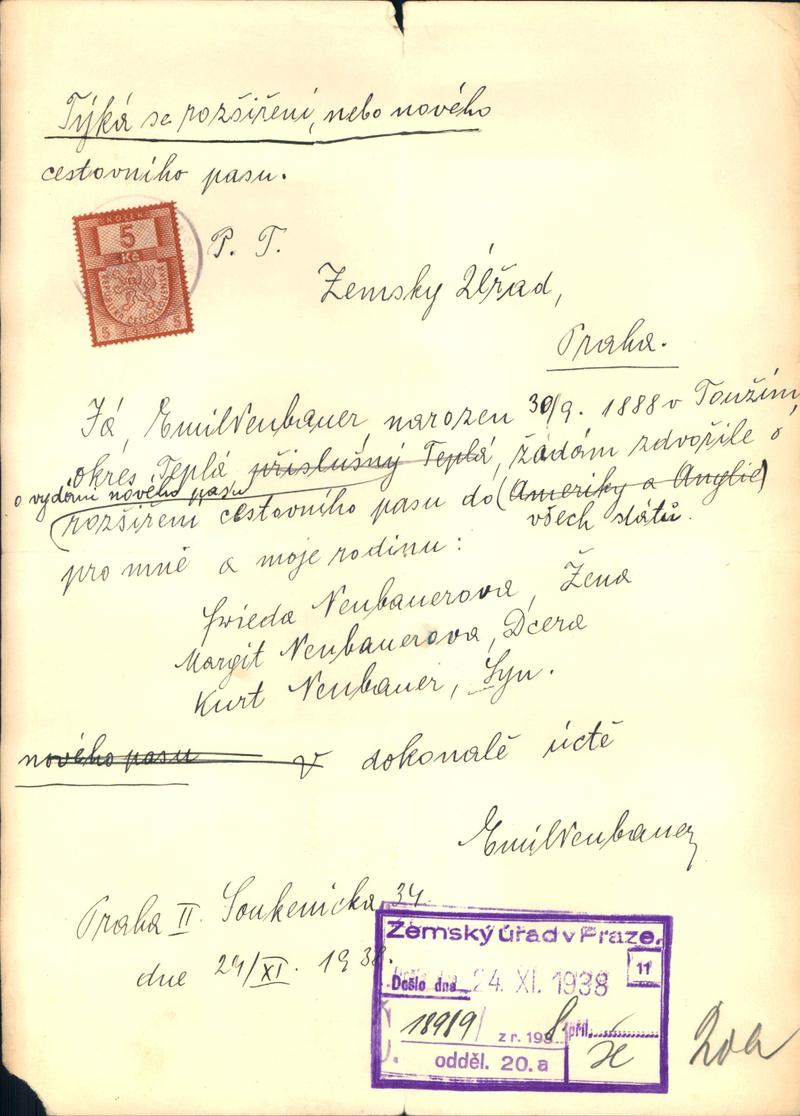 Týká se rozšíření, nebo nového
cestovního pasu.
KOLEK
5
Kč
5 5
P. T.
Zemsky Úřad,
Praha.
Já, Emil Neubauer narozen 30/9. 1888 v Toužim,
okres Teplá příslušný Teplá, žádám zdvořile o
o vydání nového pasu
rozšíření cestovního pasu do (Ameriky a Anglie)
všech států.
pro mně a moje rodinu:
Frieda Neubauerova, Žena
Margit Neubauerova, Dcera
Kurt Neubauer, Syn.
nového pasu v dokonalé úctě
Emil Neubauer
Praha II. Soukenicka 34.
dne 24/XI. 1938.
Zemský úřad v Praze.
11
Došlo dne 24. XI. 1938
18919/ z r. 1938 příl.
odděl. 20.a
20a